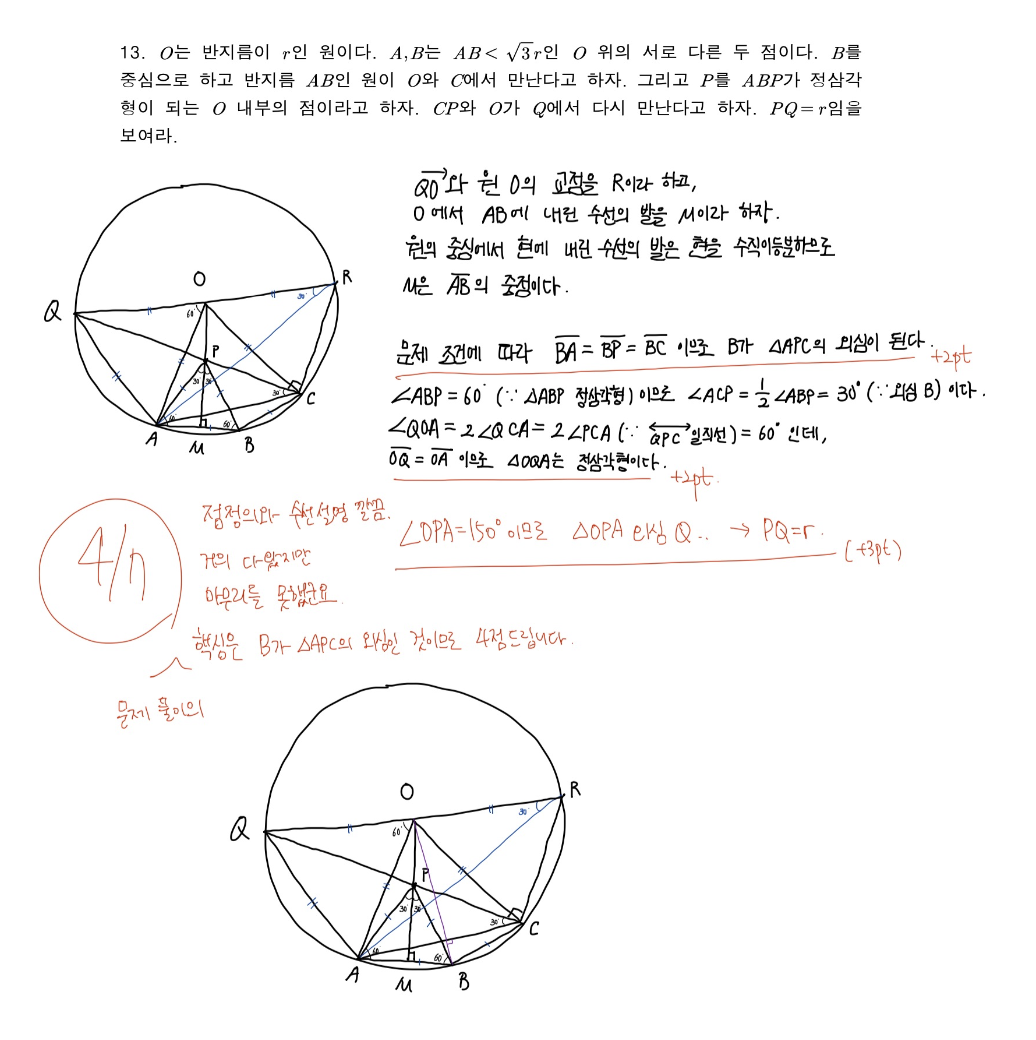 13. O는 반지름이 r인 원이다. A,B는 AB< √3r인 O 위의 서로 다른 두 점이다. B를
중심으로 하고 반지름 AB인 원이 O와 C에서 만난다고 하자. 그리고 P를 ABP가 정삼각
형이 되는 O 내부의 점이라고 하자. CP와 O가 Q에서 다시 만난다고 하자. PQ=r임을
보여라.
QO와 원 O의 교점을 R이라 하고,
O에서 AB에 내린 수선의 발을 M이라 하자.
원의 중심에서 현에 내린 수선의 발은 현을 수직이등분하므로
M은 AB의 중점이다.
문제 조건에 따라 BA = BP = BC 이므로 B가 △APC의 외심이 된다.
+2pt
∠ABP = 60° (∵ △ABP 정삼각형) 이므로 ∠ACP = 1/2 ∠ABP = 30° (∵ 외심 B) 이다.
∠QOA = 2∠QCA = 2∠PCA (∵ QPC 일직선) = 60° 인데,
OQ = OA 이므로 △OQA는 정삼각형이다.
+2pt
∠OPA=150° 이므로 △OPA 외심 Q.. → PQ=r.
(+3pt)
4/7
점정의와 수선설명 깔끔.
거의 다왔지만
마무리를 못했군요
핵심은 B가 △APC의 외심인 것이므로 4점드립니다.
문제 풀이의
O
R
Q
60°
30°
P
30
30
30°
C
60
60
A
M
B
O
R
Q
60°
30°
P
30
30
30°
C
60
60
A
M
B